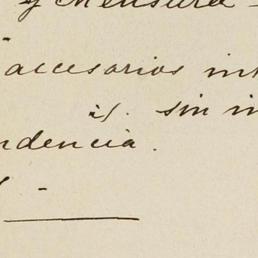 y Mensura
accesorios int
if. sin in
ndencia.